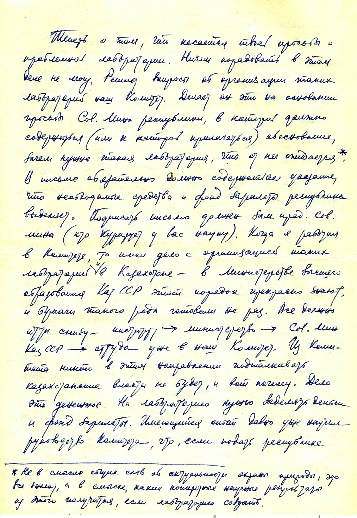 Теперь о том, что касается твоей просьбы о
проблемной лаборатории. Ничем порадовать в этом
деле не могу. Решает вопросы об организации таких
лабораторий наш Комитет. Делает он это на основании
просьбы Сов. Мина республики, в которой должно
содержаться (или к которой прилагаться) обоснование,
зачем нужна такая лаборатория, что от нее ожидается*.
В письме обязательно должно содержаться указание,
что необходимые средства и фонд зарплаты республика
выделяет. Подписать письмо должен зам. пред. Сов.
мина (кто курирует у вас науку). Когда я работал
в Комитете, то имел дело с организацией таких
лабораторий в Казахстане – в Министерстве высшего
образования Каз ССР этот порядок прекрасно знают,
и бумаги такого рода готовили не раз. Все должно
идти снизу – институт → министерство → Сов. Мин
Каз ССР → оттуда уже в наш Комитет. Из Коми-
тета никто в этом направлении подталкивать
казахстанские власти не будет, и вот почему. Дело
это денежное. На лабораторию нужно выделять деньги
и фонд зарплаты. Имеющийся опыт давно уже научил
руководство Комитета, что, если подать республике
* Не в смысле общих слов об актуальности охраны природы, это
все знают, а в смысле, какие конкретные научные результаты
от этого получатся, если лабораторию создать.